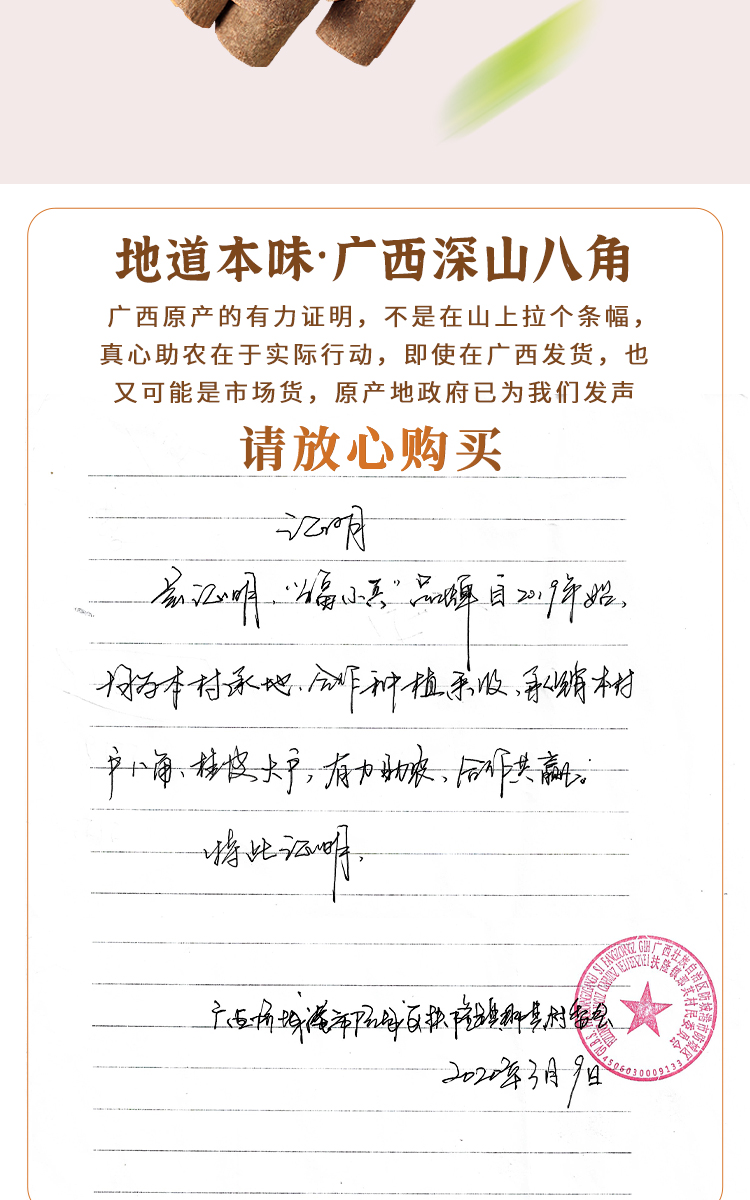 地道本味·广西深山八角
广西原产的有力证明，不是在山上拉个条幅，
真心助农在于实际行动，即使在广西发货，也
又可能是市场货，原产地政府已为我们发声
请放心购买
证明
兹证明，“福小真”品牌自2019年始，
均在本村承地、合作种植采收、承销本村
户八角、桂皮大户，有力助农、合作共赢。
特此证明。
广西壮族自治区防城港市防城区
扶隆镇那其村民委员会
4506030009133
广西防城港市防城区扶隆镇那其村委会
2020年3月9日